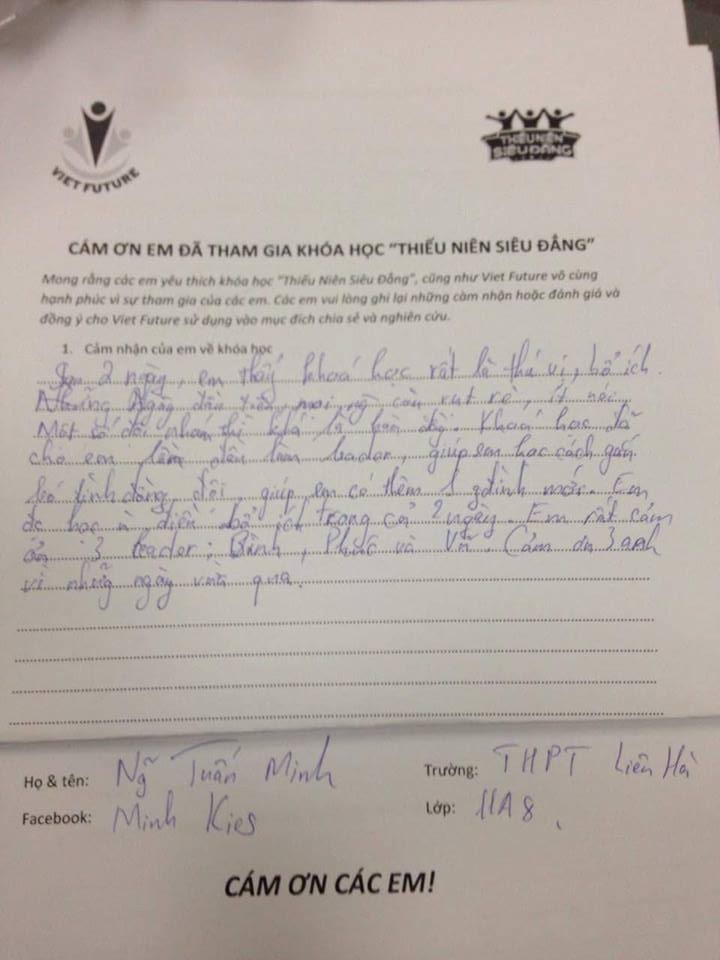 VIET FUTURE
THIẾU NIÊN
SIÊU ĐẲNG
CÁM ƠN EM ĐÃ THAM GIA KHÓA HỌC "THIẾU NIÊN SIÊU ĐẲNG"
Mong rằng các em yêu thích khóa học "Thiếu Niên Siêu Đẳng", cũng như Viet Future vô cùng
hạnh phúc vì sự tham gia của các em. Các em vui lòng ghi lại những cảm nhận hoặc đánh giá và
đồng ý cho Viet Future sử dụng vào mục đích chia sẻ và nghiên cứu.
1. Cảm nhận của em về khóa học
2 ngày, em thấy khoá học rất là thú vị, bổ ích.
Những Ngày đầu tiên, mọi ng còn rụt rè, ít nói.
Một số đội thì khá là Khoá học đã
cho em làm leader, giúp em học cách gắn
bó tình đồng đội, giúp em có thêm 1 gđình mới. Em
đc học n điều bổ ích trong cả 2 ngày. Em rất cảm
ơn 3 leader: Bình, Phúc và Vũ. Cảm ơn 3 anh
vì những ngày vừa qua.
Họ & tên: Ng Tuấn Minh
Trường: THPT Liên Hà
Facebook: Minh Kies
Lớp: 11A8
CÁM ƠN CÁC EM!